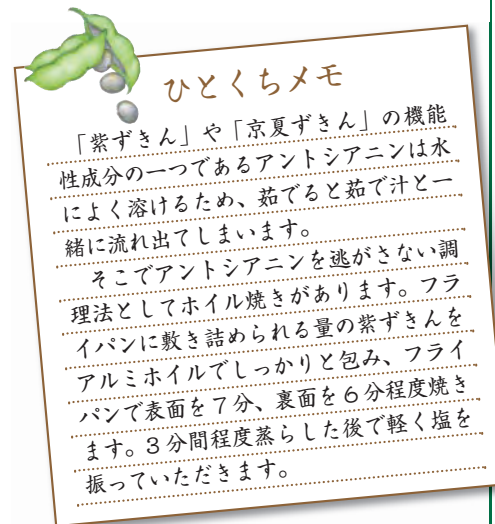 ひとくちメモ
「紫ずきん」や「京夏ずきん」の機能
性成分の一つであるアントシアニンは水
によく溶けるため、茹でると茹で汁と一
緒に流れ出てしまいます。
そこでアントシアニンを逃がさない調
理法としてホイル焼きがあります。フラ
イパンに敷き詰められる量の紫ずきんを
アルミホイルでしっかりと包み、フライ
パンで表面を7分、裏面を6分程度焼き
ます。3分間程度蒸らした後で軽く塩を
振っていただきます。